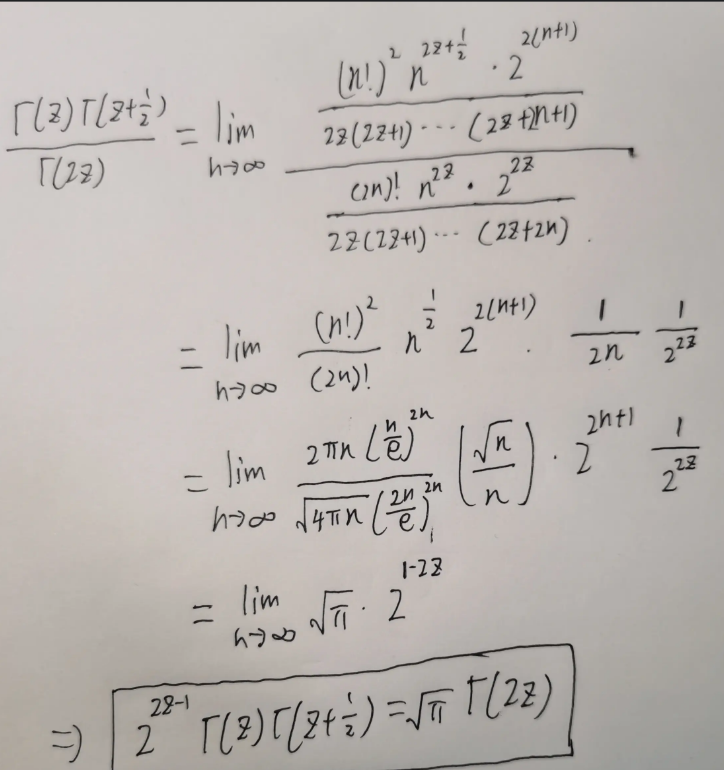 Γ(z)Γ(z+1/2) / Γ(2z) = lim n→∞ [ (n!)² n^(2z+1/2) · 2^(2(n+1)) / 2z(2z+1) ··· (2z+2n+1) ] / [ (2n)! n^(2z) · 2^(2z) / 2z(2z+1) ··· (2z+2n) ] .
= lim n→∞ (n!)² / (2n)! n^(1/2) 2^(2(n+1)) · 1/2n 1/2^(2z)
= lim n→∞ 2πn (n/e)^(2n) / √(4πn) (2n/e)^(2n) (√n / n) · 2^(2n+1) 1/2^(2z)
= lim n→∞ √π · 2^(1-2z)
⇒ 2^(2z-1) Γ(z)Γ(z+1/2) = √π Γ(2z)